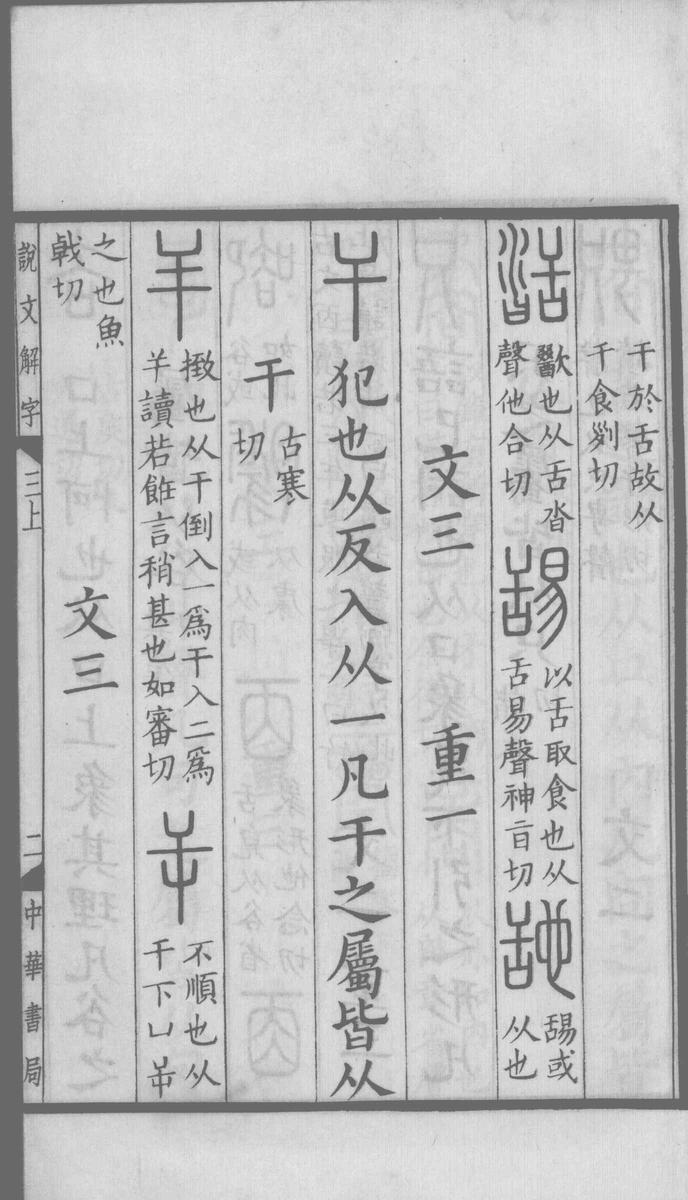 干於舌故从
干食列切
𦧟歠也从舌沓
聲他合切
舓以舌取食也从
舌易聲神旨切
𦧇舓或
从也
文三 重一
干犯也从反入从一凡干之屬皆从
干古寒
切
𢆉撴也从干倒入一爲干入二爲
𢆉讀若飪言稍甚也如審切
屰不順也从
干下凵屰
之也魚
戟切
文三
說文解字 三上
二 中華書局